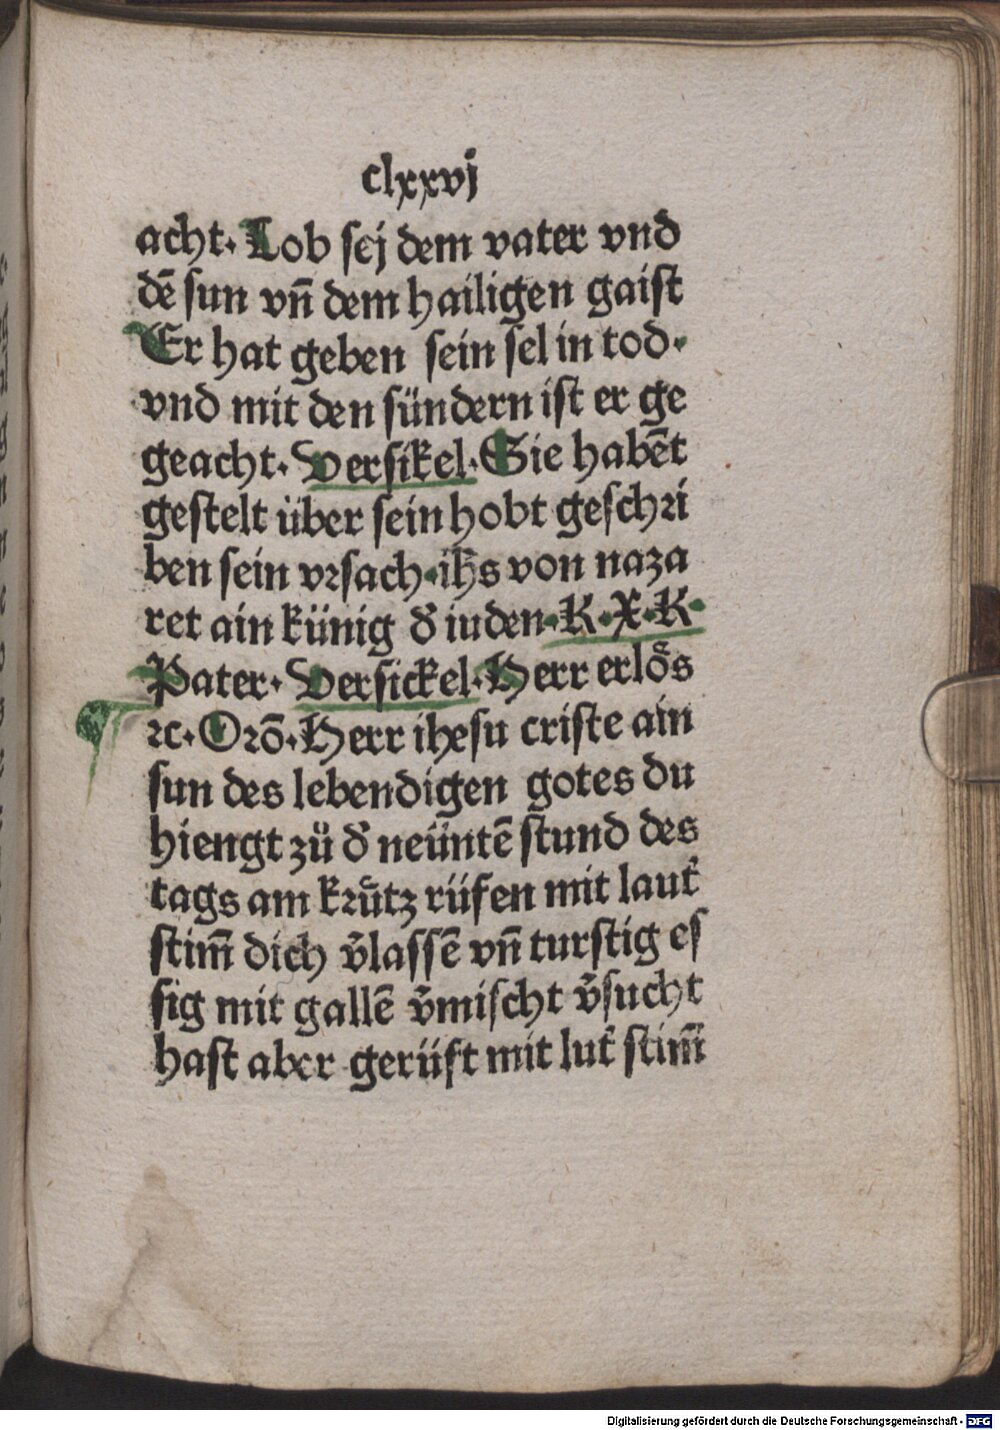 clxxvj
acht. Lob sej dem vater vnd
dē sun vn̄ dem hailigen gaist
Er hat geben sein sel in tod.
vnd mit den sündern ist er ge
geacht. Versikel. Sie habēt
gestelt über sein hobt geschri
ben sein vrsach. ih̄s von naza
ret ain künig d̕ iuden. K. X. K.
Pater. Versickel. Herr erlö᷏s
⁊c. Orō. Herr ihesu criste ain
sun des lebendigen gotes du
hiengt zü d̕ neüntē stund des
tags am krütz rüfen mit laut̕
stim̄ dich v̕lassē vn̄ turstig es
sig mit gallē v̕mischt v̕sucht
hast aber gerüft mit lut̕ stim̄
Digitalisierung gefördert durch die Deutsche Forschungsgemeinschaft - DFG